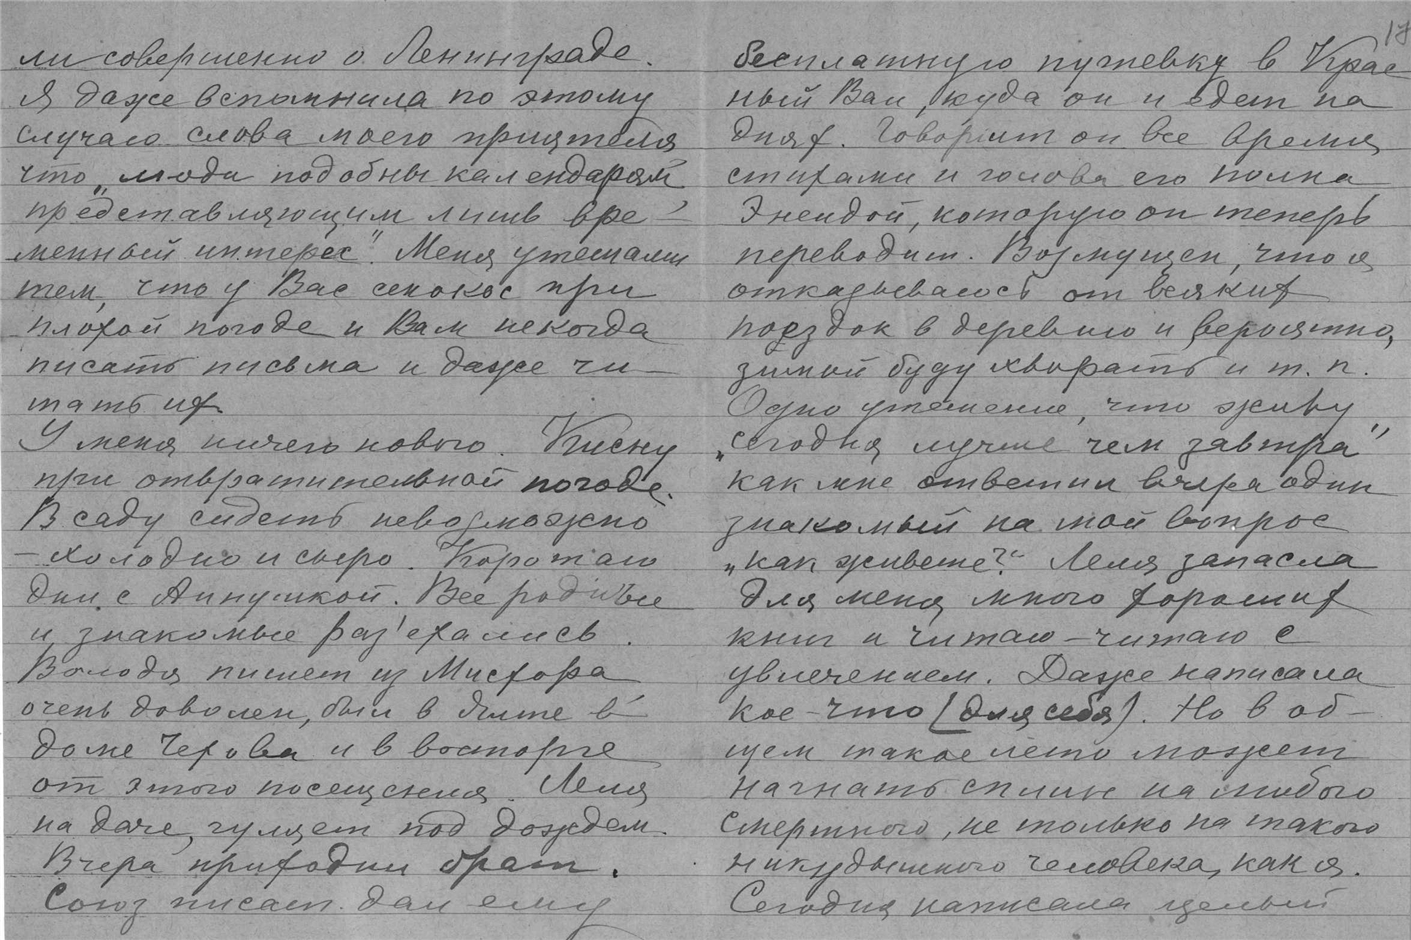 ли совершенно о Ленинграде.
Я даже вспомнила по этому
случаю слова моего приятеля
что „люди подобны календарям
представляющим лишь вре-
менный интерес". Меня утешали
тем, что у Вас сенокос при
плохой погоде и Вам некогда
писать письма и даже чи-
тать их.
У меня ничего нового. Кисну
при отвратительной погоде.
В саду сидеть невозможно
– холодно и сыро. Коротаю
дни с Аннушкой. Все родные
и знакомые раз'ехались.
Володя пишет из Мисхора
очень доволен, был в Ялте в
доме Чехова и в восторге
от этого посещения. Леля
на даче, гуляет под дождем.
Вчера приходил брат.
Союз писат. дал ему
17
бесплатную путевку в Крас
ный Вал, куда он и едет на
днях. Говорит он все время
стихами и голова его полна
Энеидой, которую он теперь
переводит. Возмущен, что я
отказываюсь от всяких
поездок в деревню и вероятно,
зимой буду хворать и т. п.
Одно утешение, что живу
„сегодня лучше чем завтра"
как мне ответил вчера один
знакомый на мой вопрос
„как живете?" Леля запасла
для меня много хороших
книг и читаю – читаю с
увлечением. Даже написала
кое-что (для себя). Но в об-
щем такое лето может
нагнать сплин на любого
смертного, не только на такого
никудышного человека, как я.
Сегодня написала целый